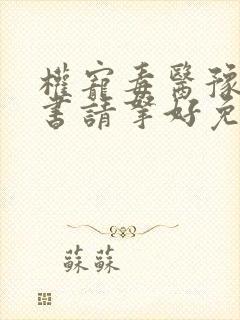 權寵毒醫豫
書請擎好免
蘇蘇